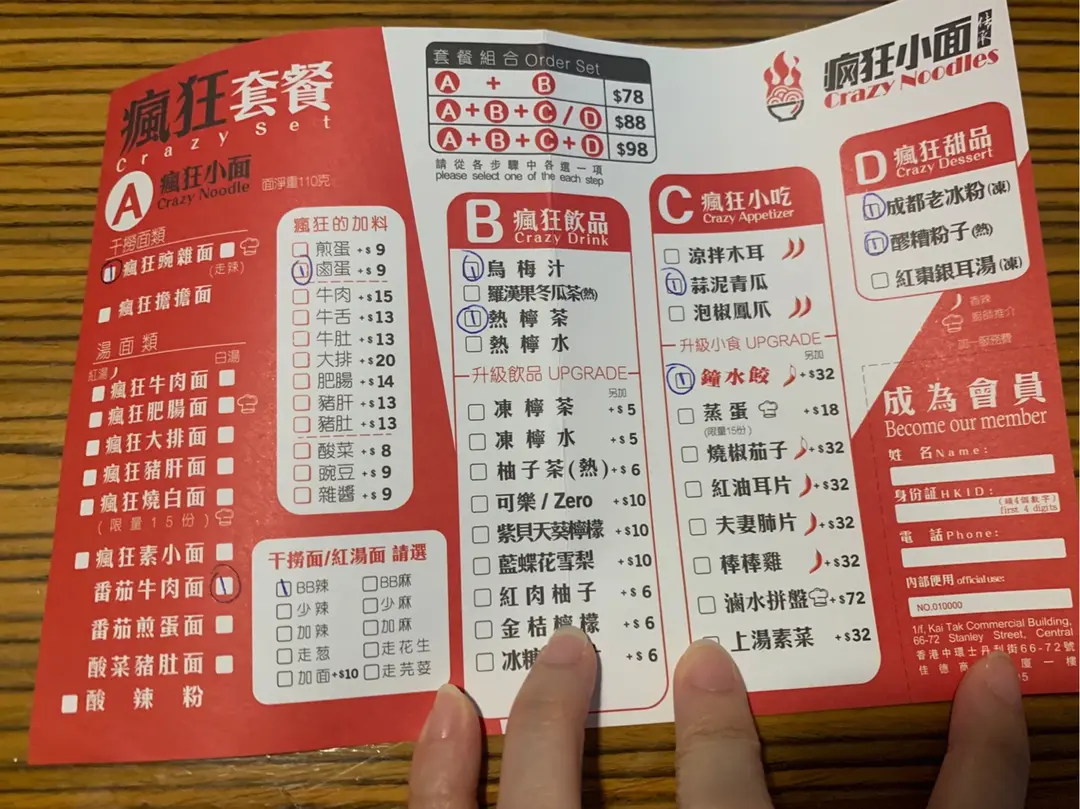 瘋狂套餐
Crazy Set
A 瘋狂小面
Crazy Noodle
面淨重110克
干撈面類
瘋狂豌雜面
(走辣)
瘋狂擔擔面
湯面類
紅湯 白湯
瘋狂牛肉面
瘋狂肥腸面
瘋狂大排面
瘋狂豬肝面
瘋狂燒白面
(限量15份)
瘋狂素小面
番茄牛肉面
番茄煎蛋面
酸菜豬肚面
酸辣粉
瘋狂的加料
煎蛋 +$9
鹵蛋 +$9
牛肉 +$15
牛舌 +$13
牛肚 +$13
大排 +$20
肥腸 +$14
豬肝 +$13
豬肚 +$13
酸菜 +$8
豌豆 +$9
雜醬 +$9
干撈面/紅湯面 請選
BB辣 BB麻
少辣 少麻
加辣 加麻
走葱 走花生
加面+$10 走芫荽
套餐組合 Order Set
A + B $78
A+B+C/D $88
A+B+C+D $98
請從各步驟中各選一項
please select one of the each step
B 瘋狂飲品
Crazy Drink
烏梅汁
羅漢果冬瓜茶(熱)
熱檸茶
熱檸水
升級飲品 UPGRADE
另加
凍檸茶 +$5
凍檸水 +$5
柚子茶(熱) +$6
可樂/Zero +$10
紫貝天葵檸檬 +$10
藍蝶花雪梨 +$10
紅肉柚子 +$6
金桔檸檬 +$6
冰 +$6
C 瘋狂小吃
Crazy Appetizer
涼拌木耳
蒜泥青瓜
泡椒鳳爪
升級小食 UPGRADE
另加
鐘水餃 +$32
蒸蛋 +$18
(限量15份)
燒椒茄子 +$32
紅油耳片 +$32
夫妻肺片 +$32
棒棒雞 +$32
滷水拼盤 +$72
上湯素菜 +$32
瘋狂小面
Crazy Noodles
D 瘋狂甜品
Crazy Dessert
成都老冰粉(凍)
醪糟粉子(熱)
紅棗銀耳湯(凍)
香辣
廚師推介
成為會員
Become our member
姓名Name:
身份証HKID:
(頭4個數字)
first 4 digits
電話Phone:
內部使用 official use:
NO.010000
1/f, Kai Tak Commercial Building,
66-72 Stanley Street, Central
香港中環士丹利街66-72號
佳德商 廈一樓